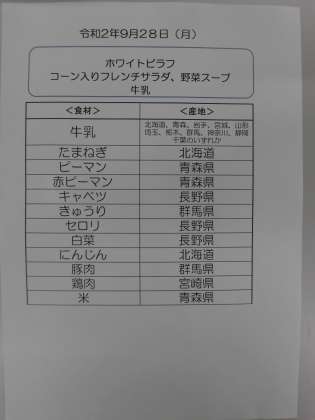 令和2年9月28日（月）
ホワイトピラフ
コーン入りフレンチサラダ、野菜スープ
牛乳
＜食材＞ ＜産地＞
牛乳 北海道、青森、岩手、宮城、山形
埼玉、栃木、群馬、神奈川、静岡
千葉のいずれか
たまねぎ 北海道
ピーマン 青森県
赤ピーマン 青森県
キャベツ 長野県
きゅうり 群馬県
セロリ 長野県
白菜 長野県
にんじん 北海道
豚肉 群馬県
鶏肉 宮崎県
米 青森県